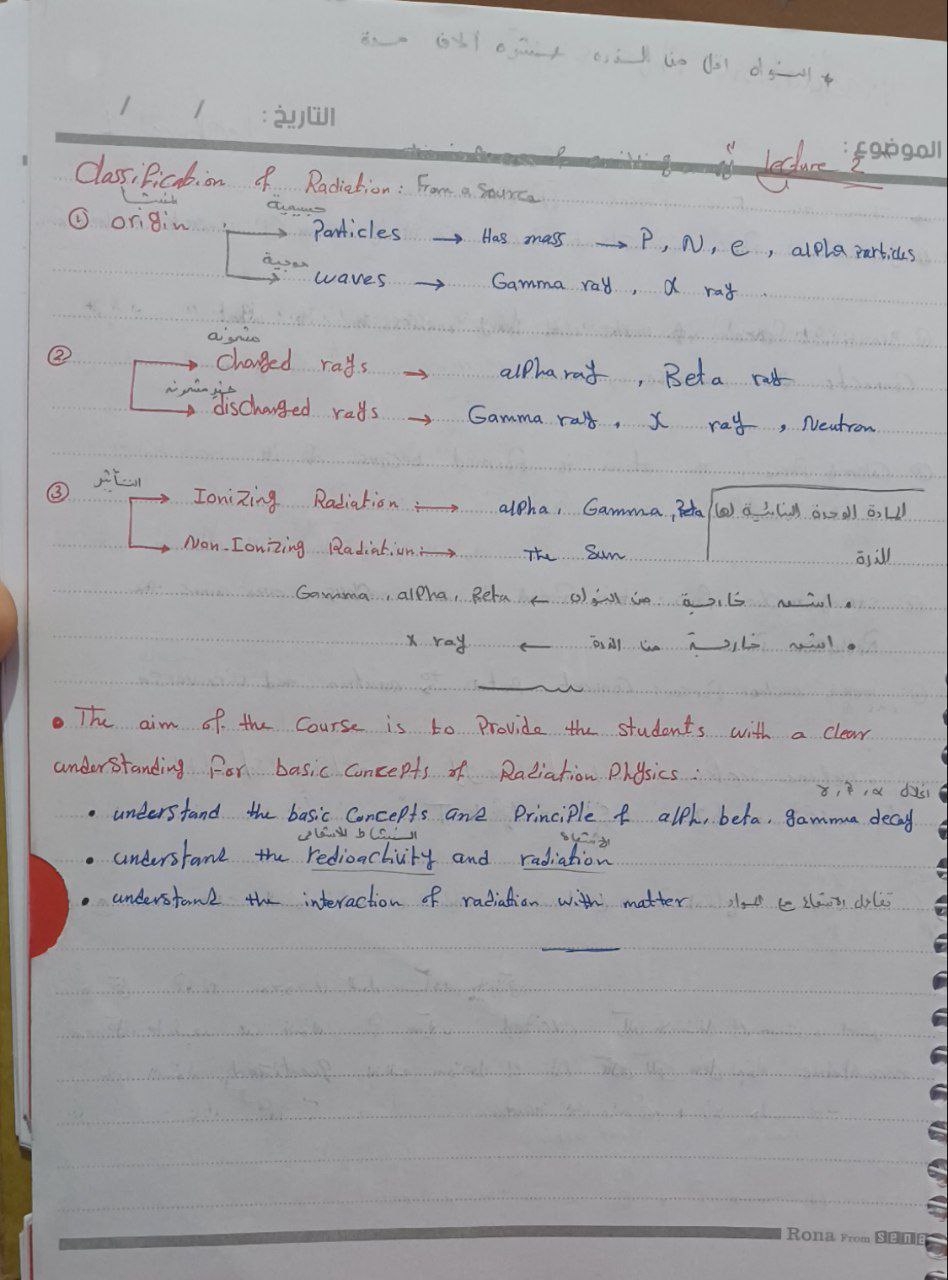 * النواة اقل من الذره بعشره ألاف مرة
التاريخ : / /
الموضوع :
Lecture 2
Classification of Radiation : From a Source
منشأ جسيمية
① origin Particles → Has mass → P , N , e , alpha particles
موجية
waves → Gamma ray , X ray
مشحونه
② charged rays → alpha ray , Beta ray
غير مشحونه
discharged rays → Gamma ray , X ray , Neutron
التأثير
③ Ionizing Radiation : → alpha , Gamma , Beta المادة الوحدة البنائية لها
Non-Ionizing Radiation : → The Sun الذرة
• اشعه خارجية من النواه ← Gamma , alpha , Beta
• اشعه خارجية من الذرة ← X ray
• The aim of the Course is to Provide the students with a clear
understanding For basic Concepts of Radiation Physics :
انحلال α , β , γ
• understand the basic Concepts and Principle of alph, beta, gamma decay
النشاط الاشعاعي الاشعاع
• understand the redioactivity and radiation
• understand the interaction of radiation with matter تفاعل الاشعاع مع المواد
Rona From sena